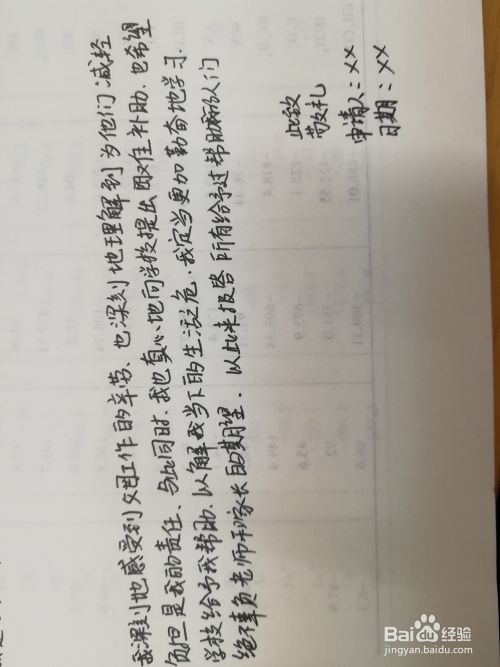 我深刻地感受到父母工作的辛劳、也深刻地理解到为他们减轻
负担是我的责任、与此同时.我也真心地向学校提出 住补助.也希望
学校给予我帮助.以解我当下的生活之危.我定当更加勤奋地学习.
绝不辜负老师和家长的期望.以此来报答所有给予过帮助的人们
此致
敬礼
申请人：××
日期：××
Baidu 经验
jingyan.baidu.com